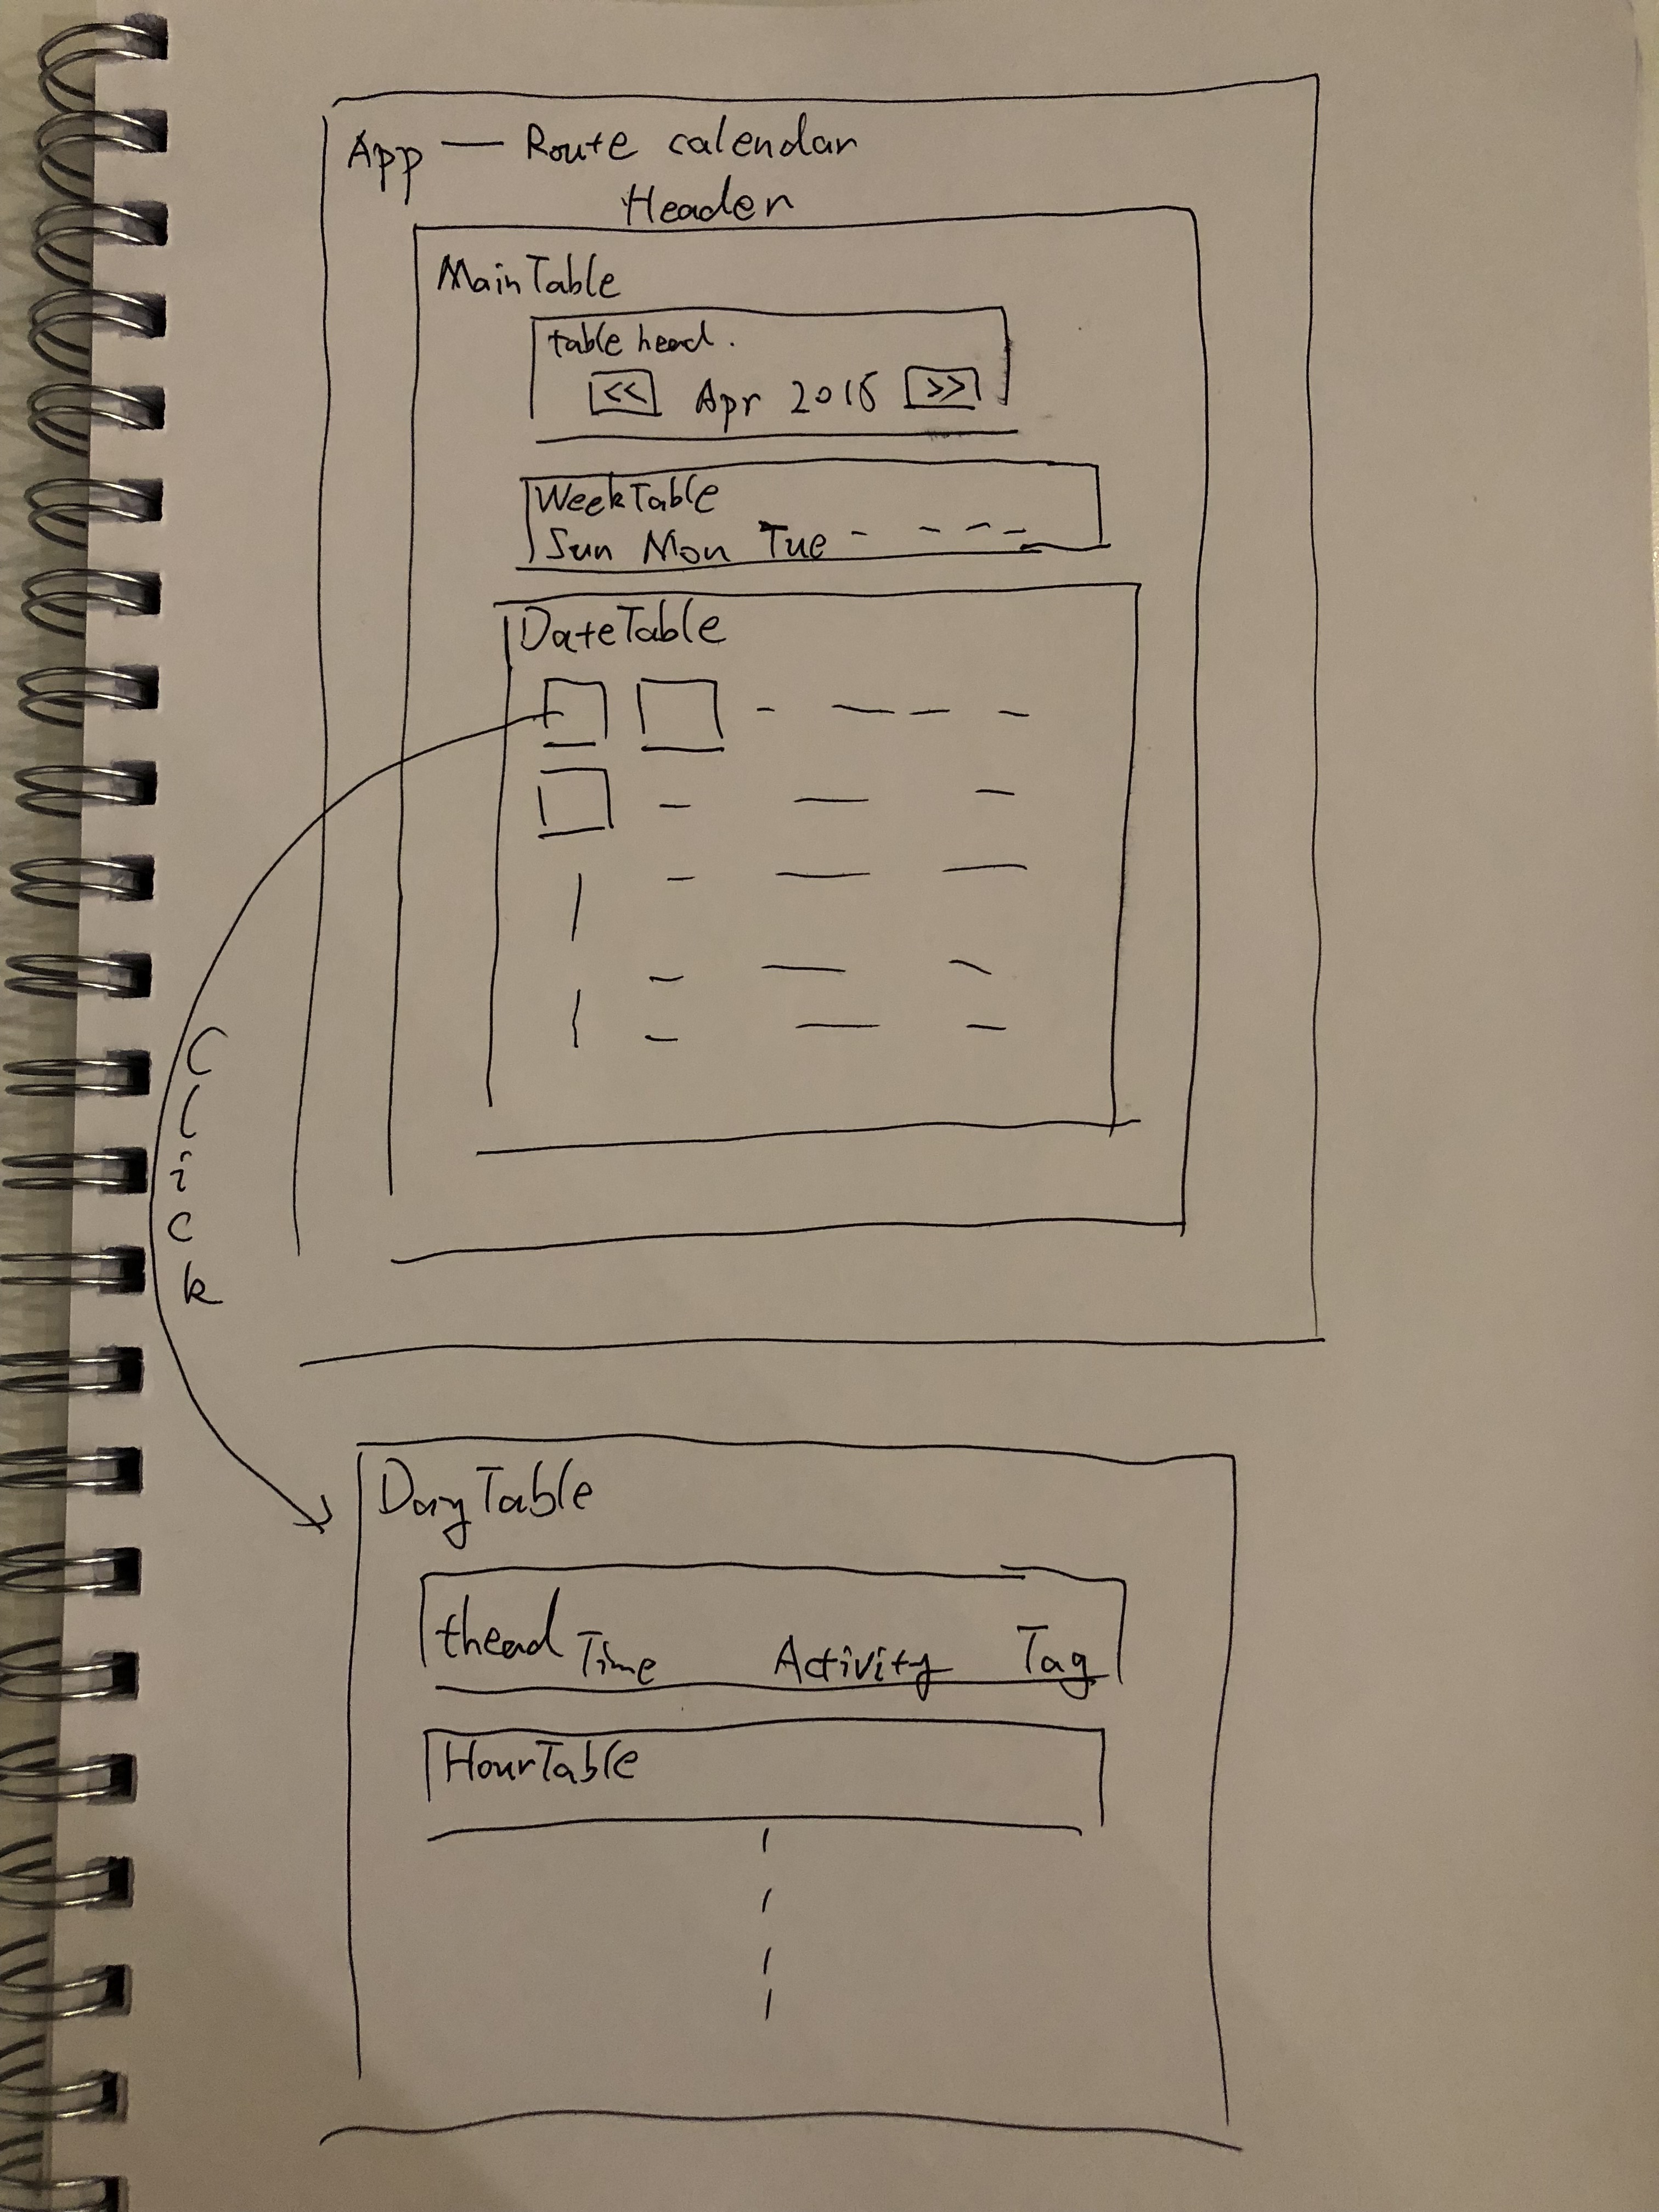 App — Route calendar
Header
MainTable
table head.
<< Apr 2016 >>
WeekTable
Sun Mon Tue - - - -
DateTable
Click
DayTable
thead Time Activity Tag
HourTable